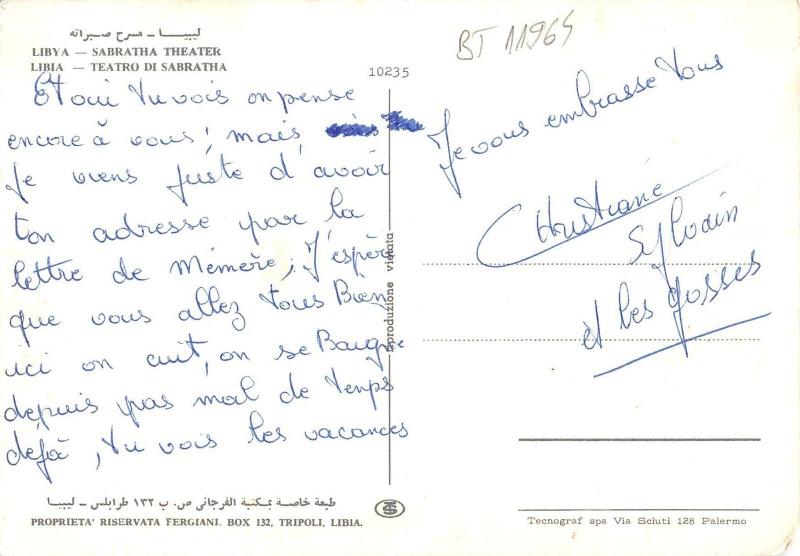 ليبيـــا ــ مسرح صبراته
LIBYA — SABRATHA THEATER
LIBIA — TEATRO DI SABRATHA
10235
BT 11965
Et oui tu vois on pense
encore à vous, mais
je viens juste d'avoir
ton adresse par la
lettre de Mémère, J'espère
que vous allez tous Bien
ici on cuit, on se Baigne
depuis pas mal de temps
déjà, tu vois les vacances
Je vous embrasse tous
Christiane
Sylvain
et les gosses
riproduzione vietata
طبعة خاصة بمكتبة الفرجاني ص. ب ١٣٢ طرابلس ــ ليبيــا
PROPRIETA' RISERVATA FERGIANI. BOX 132, TRIPOLI, LIBIA.
Tecnograf spa Via Sciuti 128 Palermo